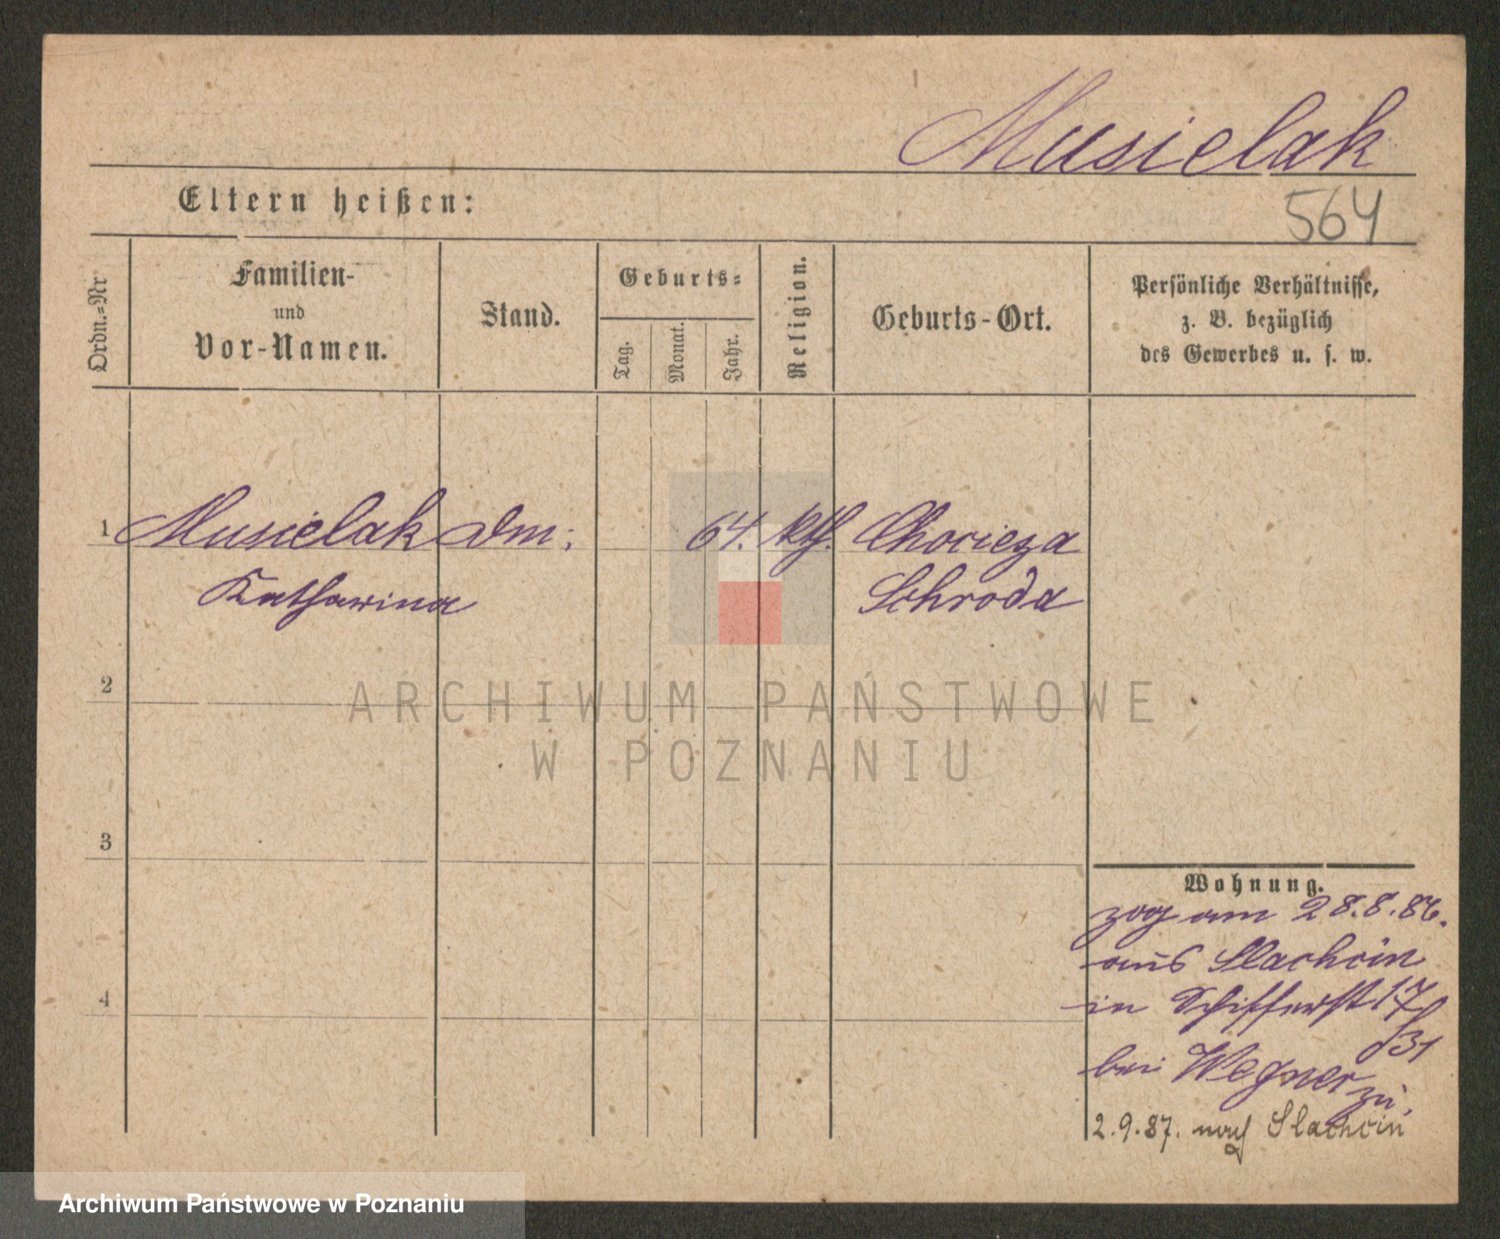 Musielak
Eltern heißen:
564
Ordn.-Nr
Familien-
und
Vor-Namen.
Stand.
Geburts-
Tag.
Monat.
Jahr.
Religion.
Geburts-Ort.
Persönliche Verhältnisse,
z. B. bezüglich
des Gewerbes u. s. w.
1 Musielak Dm: 64. kth. Chocieza
Katharina Schroda
2
ARCHIWUM PAŃSTWOWE
W POZNANIU
3
Wohnung.
zog am 28.8.86.
aus Slachcin
4
in Schifferst 17
/31
bei Wegner zu.
2.9.87. nach Slachcin
Archiwum Państwowe w Poznaniu